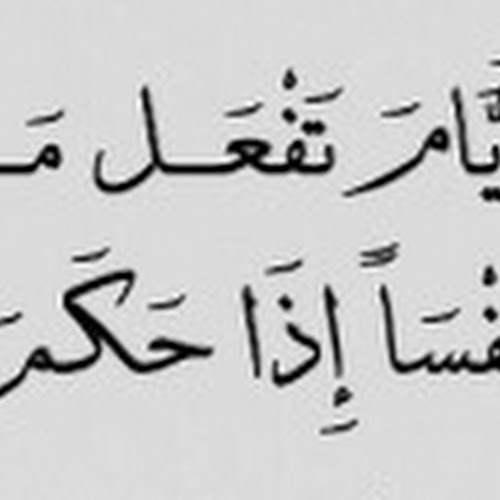 يَّامَ تَفْعَل مَـ
فْسَاً إِذَا حَكَمَ